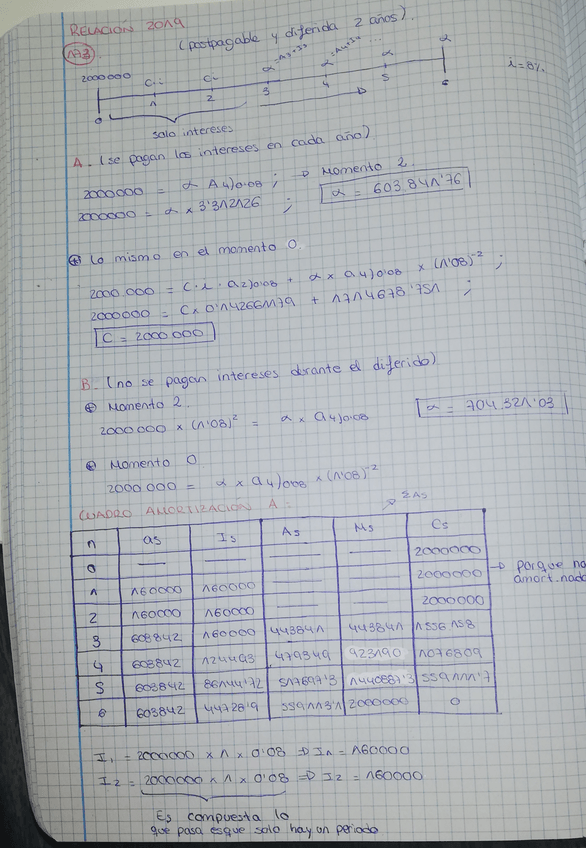 RELACION 2019
173 (postpagable y diferida 2 años).
2000000 C·i C·i α α α α i = 8%
0 1 2 3 4 5 6
solo intereses
A. (se pagan los intereses en cada año)
2000000 = α A4)0'08 ; Momento 2.
2000000 = α x 3'312126 ; α = 603.841'76
Lo mismo en el momento 0.
2000.000 = C·i·a2)0'08 + α x a4)0'08 x (1'08)^-2 ;
2000000 = C x 0'14266179 + 1714678'751 ;
C = 2000.000
B. (no se pagan intereses durante el diferido)
Momento 2.
2000000 x (1'08)^2 = α x a4)0'08 α = 704.321'03
Momento 0
2000.000 = α x a4)0'08 x (1'08)^-2
CUADRO AMORTIZACION A. ΣAs
n as Is As Ms Cs
0 — — — — 2000000
1 160000 160000 — — 2000000 → porque no
amort. nada
2 160000 160000 — — 2000000
3 603842 160000 443841 443841 1556158
4 603842 124493 479349 923190 1076809
5 603842 86144'72 517697'3 1440887'3 559111'7
6 603842 44728'9 559113'1 2000000 0
I1 = 2000000 x 1 x 0'08 ⇒ I1 = 160000
I2 = 2000000 x 1 x 0'08 ⇒ I2 = 160000
Es compuesta lo
que pasa es que solo hay un periodo